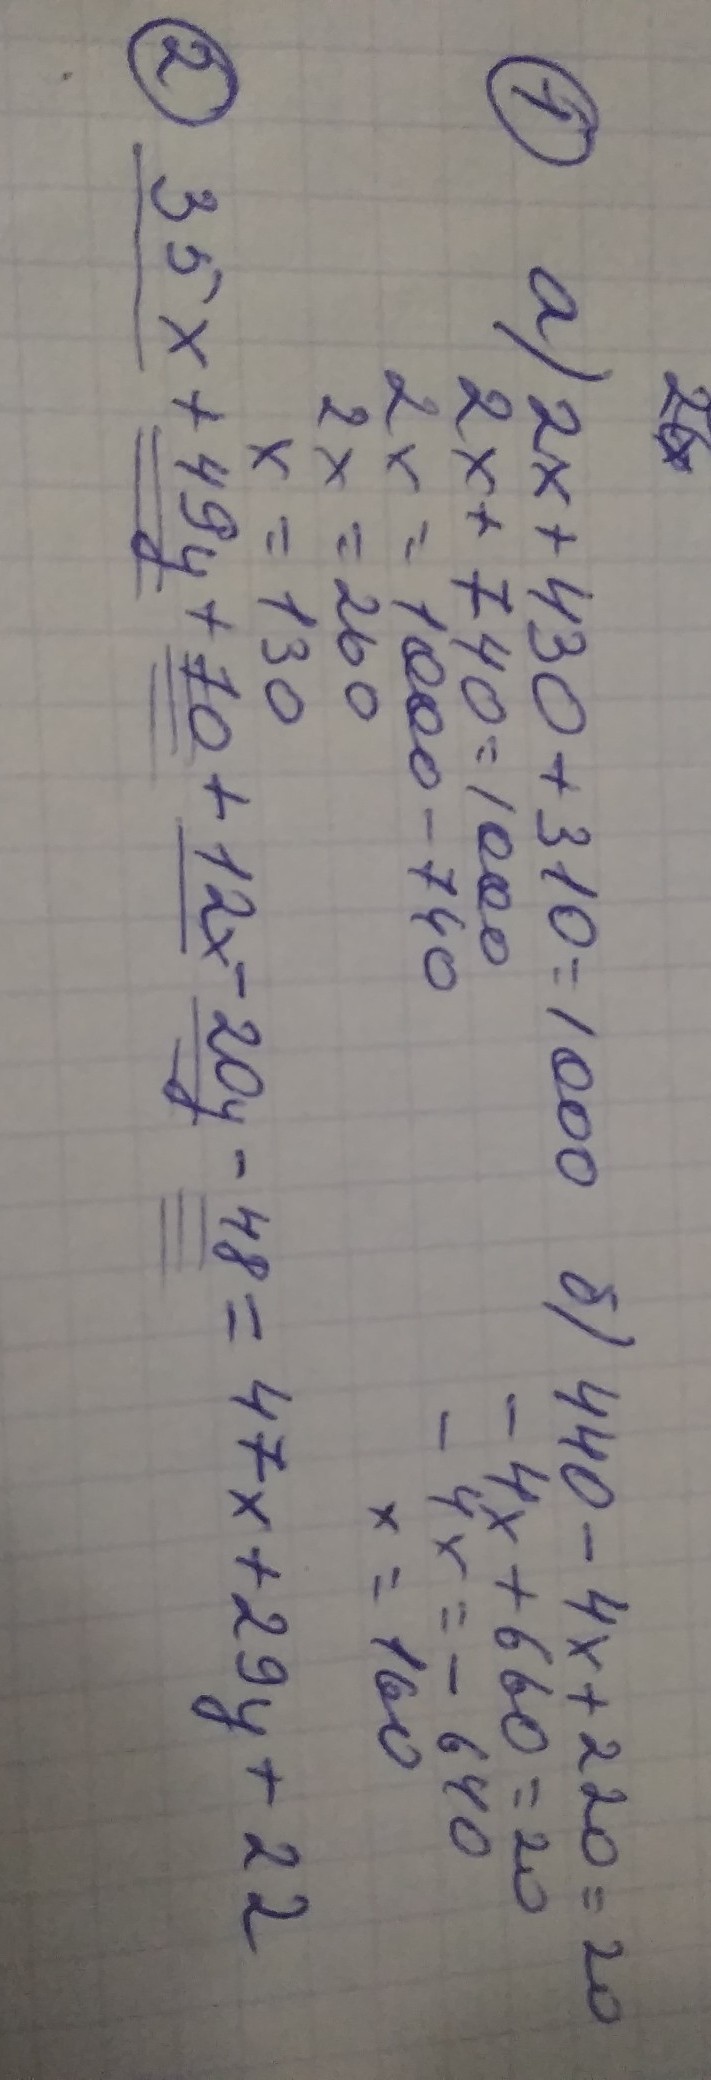 1 а) 2x + 430 + 310 = 1000 б) 440 - 4x + 220 = 20
2x + 740 = 1000 - 4x + 660 = 20
2x = 1000 - 740 - 4x = - 640
2x = 260 x = 160
x = 130
2 35x + 49y + 70 + 12x - 20y - 48 = 47x + 29y + 22